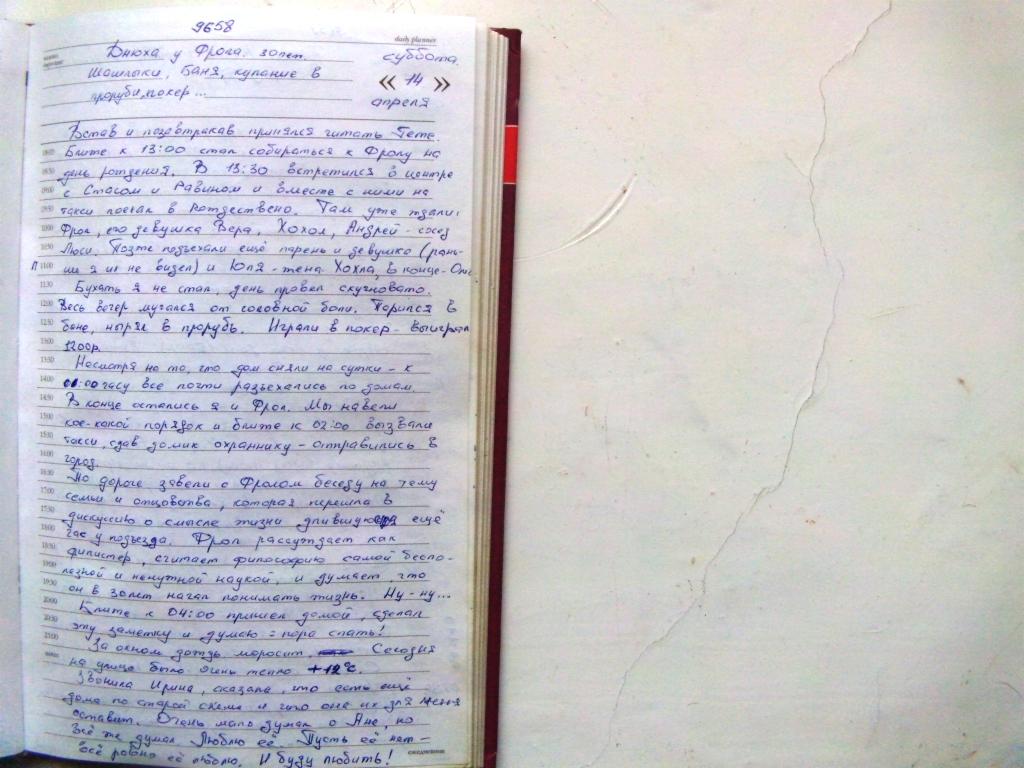 9658
daily planner
Днюха у Фрола. 30 лет.
суббота.
Шашлыки, Баня, купание в
« 14 »
проруби, покер...
апреля
Встав и позавтракав принялся читать Гете.
Ближе к 13:00 стал собираться к Фролу на
день рождения. В 13:30 встретился в центре
с Стасом и Равином и вместе с ними на
такси поехал в Рождествено. Там уже ждали:
Фрол, его девушка Вера, Хохол, Андрей - сосед
Люси. Позже подъехали ещё парень и девушка (рань-
ше я их не видел) и Юля - жена Хохла, в конце -
Бухать я не стал, день провёл скучновато.
Весь вечер мучался от головной боли. Парился в
бане, нырял в прорубь. Играли в покер - выиграл
1200р.
Несмотря на то, что дом сняли на сутки - к
00:00 часу все почти разъехались по домам.
В конце остались я и Фрол. Мы навели
кое-какой порядок и ближе к 02:00 вызвали
такси, сдав домик охраннику - отправились в
город.
По дороге завели с Фролом беседу на тему
семьи и отцовства, которая перешла в
дискуссию о смысле жизни длившуюся ещё
час у подъезда. Фрол рассуждает как
филистер, считает философию самой беспо-
лезной и ненужной наукой, и думает, что
он в 30 лет начал понимать жизнь. Ну-ну...
Ближе к 04:00 пришёл домой, сделал
эту заметку и думаю = пора спать!
За окном дождь моросит. Сегодня
на улице было очень тепло +12°С.
Звонила Ирина, сказала, что есть ещё
дома по старой схеме и что она их для меня
оставит. Очень мало думал о Ане, но
всё же думал. Люблю её. Пусть её нет -
всё равно её люблю. И буду любить!
ежедневник